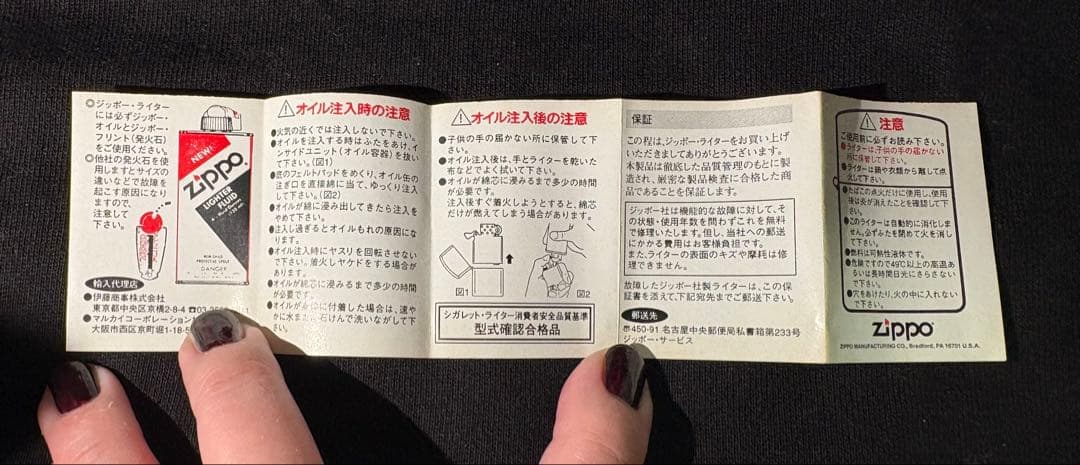 ◎ジッポー・ライター
には必ずジッポー・
オイルとジッポー・
フリント(発火石)
をご使用ください。
◎他社の発火石を使
用しますとサイズの
違いなどで故障を
起こす原因になり
ますので、
注意して
下さい。
NEW!
Zippo
LIGHTER
FLUID
DANGER
輸入代理店
●伊藤商事株式会社
東京都中央区京橋2-8-4 ☎03
●マルカイコーポレーション
大阪市西区京町堀1-18-5
⚠オイル注入時の注意
●火気の近くでは注入しないで下さい。
●オイルを注入する時はふたをあけ、イ
ンサイドユニット(オイル容器)を抜い
て下さい。(図1)
●底のフェルトパッドをめくり、オイル缶の
注ぎ口を直接綿に当て、ゆっくり注入
して下さい。(図2)
●オイルが綿に浸み出してきたら注入を
やめて下さい。
●注入し過ぎるとオイルもれの原因にな
ります。
●オイル注入時にヤスリを回転させない
で下さい。着火しヤケドをする場合が
あります。
●オイルが綿芯に浸みるまで多少の時間
が必要です。
●オイルが
に付着した場合は、速や
かに水また
石けんで洗いながして下
さい。
⚠オイル注入後の注意
●子供の手の届かない所に保管して下
さい。
●オイル注入後は、手とライターを乾いた
布などでよく拭いて下さい。
●オイルが綿芯に浸みるまで多少の時間
が必要です。
注入後すぐ着火しようとすると、綿芯
だけが燃えてしまう場合があります。
図1
図2
シガレット・ライター消費者安全品質基準
型式確認合格品
保証
この程はジッポー・ライターをお買い上げ
いただきましてありがとうございます。
本製品は徹底した品質管理のもとに製
造され、厳密な製品検査に合格した商
品であることを保証します。
ジッポー社は機能的な故障に対して、そ
の状態・使用年数を問わずこれを無料
で修理いたします。但し、当社への郵送
にかかる費用はお客様負担です。
また、ライターの表面のキズや摩耗は修
理できません。
故障したジッポー社製ライターは、この保
証書を添えて、下記宛先までご郵送下さい。
郵送先
〒450-91 名古屋中央郵便局私書箱第233号
ジッポー・サービス
⚠注意
ご使用前に必ずお読み下さい。
●ライターは、子供の手の届かない
所に保管して下さい。
●ライターは顔や衣類から離して点
火して下さい。
●たばこの点火だけに使用し、使用
後は炎が消えたことを確認して下
さい。
●このライターは自動的に消火しま
せん。必ずふたを閉めて火を消し
て下さい。
●燃料は可燃性液体です。
●危険ですので49℃以上の高温あ
るいは長時間日光にさらさない
で下さい。
●穴をあけたり、火の中に入れない
で下さい。
Zippo
ZIPPO MANUFACTURING CO., Bradford, PA 16701 U.S.A.